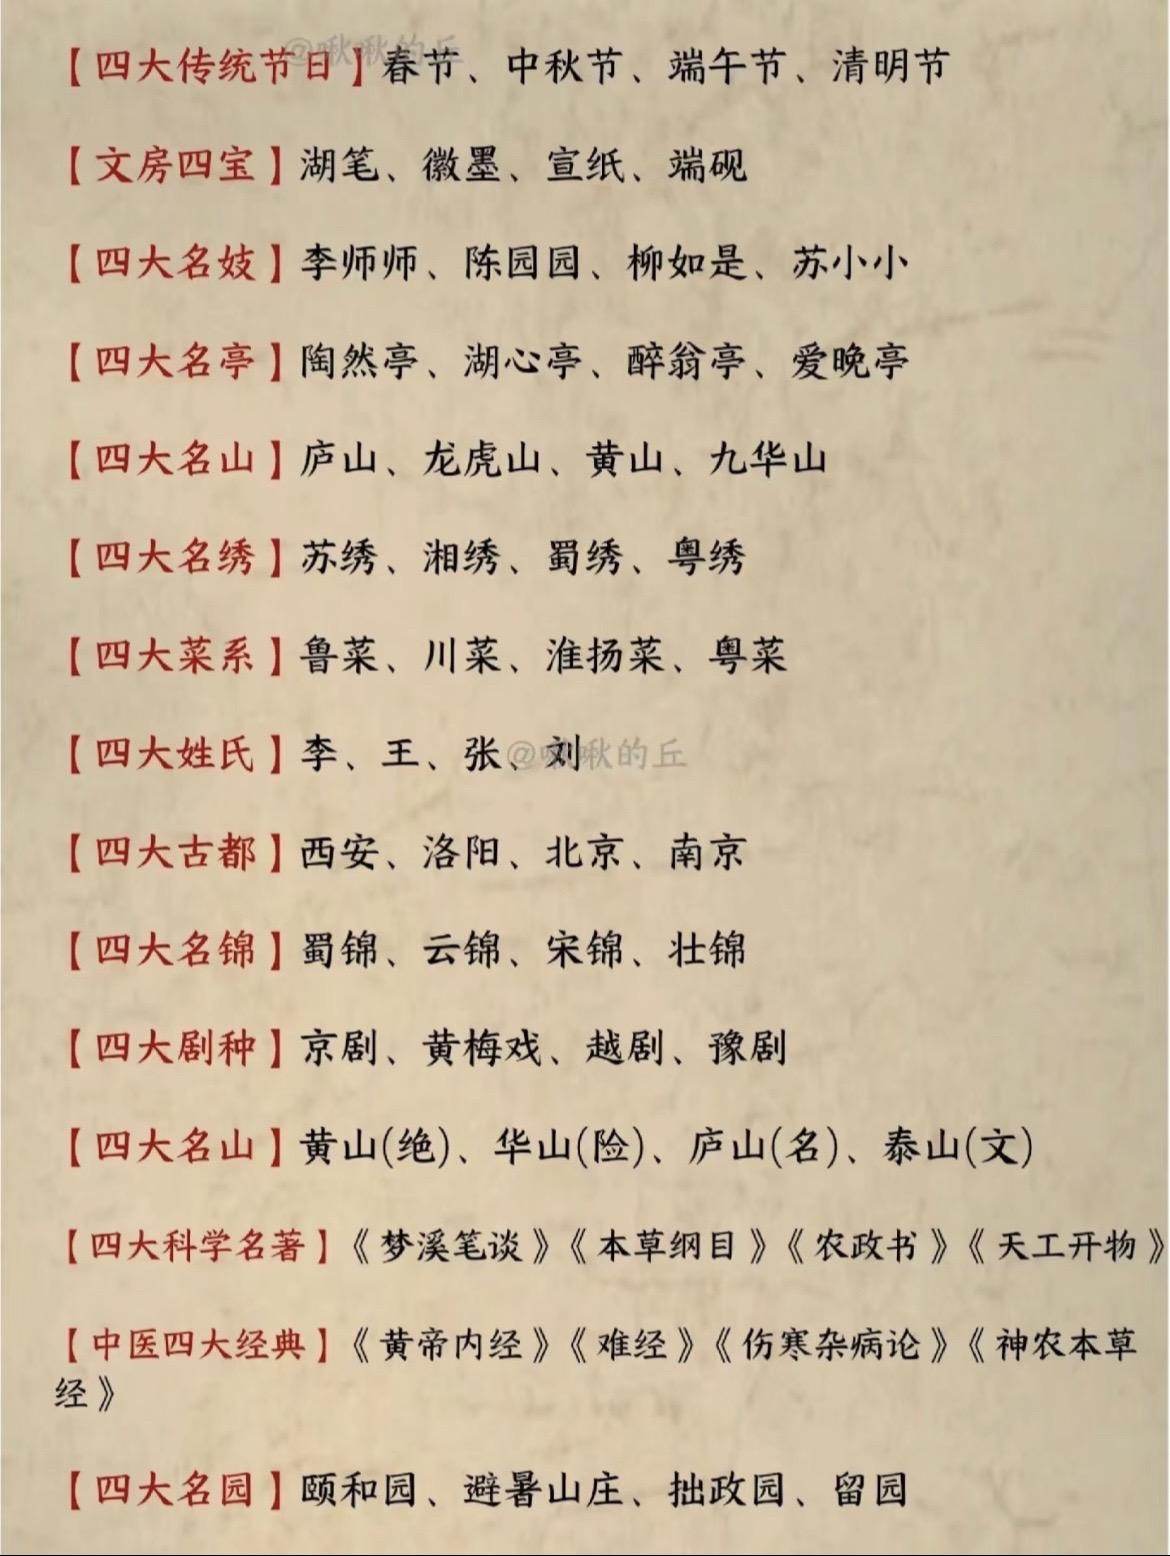 【四大传统节日】春节、中秋节、端午节、清明节
@啾啾的丘
【文房四宝】湖笔、徽墨、宣纸、端砚
【四大名妓】李师师、陈园园、柳如是、苏小小
【四大名亭】陶然亭、湖心亭、醉翁亭、爱晚亭
【四大名山】庐山、龙虎山、黄山、九华山
【四大名绣】苏绣、湘绣、蜀绣、粤绣
【四大菜系】鲁菜、川菜、淮扬菜、粤菜
【四大姓氏】李、王、张、刘
@啾啾的丘
【四大古都】西安、洛阳、北京、南京
【四大名锦】蜀锦、云锦、宋锦、壮锦
【四大剧种】京剧、黄梅戏、越剧、豫剧
【四大名山】黄山(绝)、华山(险)、庐山(名)、泰山(文)
【四大科学名著】《梦溪笔谈》《本草纲目》《农政书》《天工开物》
【中医四大经典】《黄帝内经》《难经》《伤寒杂病论》《神农本草
经》
【四大名园】颐和园、避暑山庄、拙政园、留园